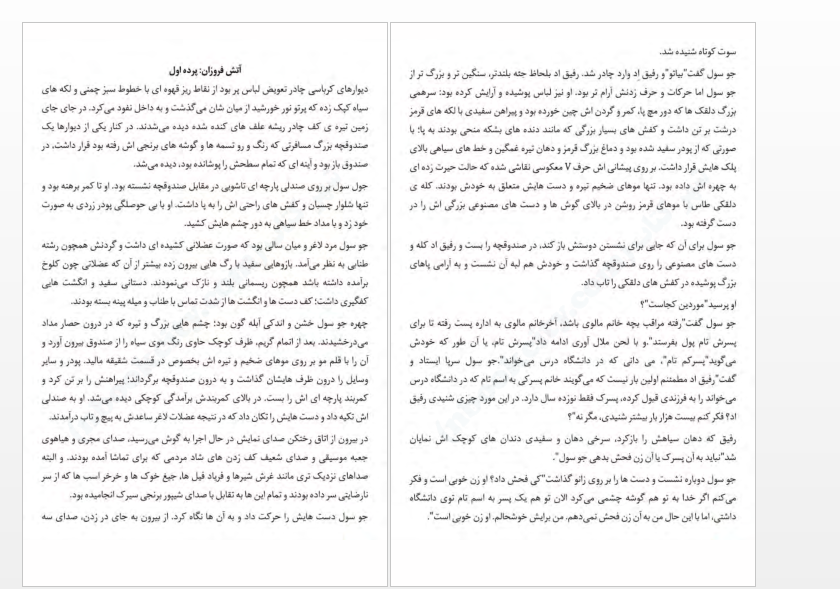 آتش فروزان: پرده اول
دیوارهای کرباسی چادر تعویض لباس پر بود از نقاط ریز قهوه ای با خطوط سبز چمنی و لکه های
سیاه کپک زده که پرتو نور خورشید از میان شان می‌گذشت و به داخل نفوذ می‌کرد. در جای جای
زمین تیره ی کف چادر ریشه علف های کنده شده دیده می‌شدند. در کنار یکی از دیوارها یک
صندوقچه بزرگ مسافرتی که رنگ و رو تسمه ها و گوشه های برنجی اش رفته بود قرار داشت، در
صندوق باز بود و آینه ای که تمام سطحش را پوشانده بود، دیده می‌شد.
جول سول بر روی صندلی پارچه ای تاشویی در مقابل صندوقچه نشسته بود. او تا کمر برهنه بود و
تنها شلوار چسبان و کفش های راحتی اش را به پا داشت. او با بی حوصلگی پودر زردی به صورت
خود زد و با مداد خط سیاهی به دور چشم هایش کشید.
جو سول مرد لاغر و میان سالی بود که صورت عضلانی کشیده ای داشت و گردنش همچون رشته
طنابی به نظر می‌آمد. بازوهایی سفید با رگ هایی بیرون زده بیشتر از آن که عضلاتی چون کلوخ
برآمده داشته باشد همچون ریسمانی بلند و نازک می‌نمودند. دستانی سفید و انگشت هایی
کفگیری داشت؛ کف دست ها و انگشت ها از شدت تماس با طناب و میله پینه بسته بودند.
چهره جو سول خشن و اندکی آبله گون بود؛ چشم هایی بزرگ و تیره که در درون حصار مداد
می‌درخشیدند. بعد از اتمام گریم، ظرف کوچک حاوی رنگ موی سیاه را از صندوق بیرون آورد و
آن را با قلم مو بر روی موهای ضخیم و تیره اش بخصوص در قسمت شقیقه مالید. پودر و سایر
وسایل را درون ظرف هایشان گذاشت و به درون صندوقچه برگرداند؛ پیراهنش را بر تن کرد و
کمربند پارچه ای اش را بست. در بالای کمربندش برآمدگی کوچکی دیده می‌شد. او به صندلی
اش تکیه داد و دست هایش را تکان داد که در نتیجه عضلات لاغر ساعدش به پیچ و تاب درآمدند.
در بیرون از اتاق رختکن صدای نمایش در حال اجرا به گوش می‌رسید، صدای مجری و هیاهوی
جعبه موسیقی و صدای ضعیف کف زدن های شاد مردمی که برای تماشا آمده بودند. و البته
صداهای نزدیک تری مانند غرش شیرها و فریاد فیل ها، جیغ خوک ها و خرخر اسب ها که از سر
نارضایتی سر داده بودند و تمام این ها به تقابل با صدای شیپور برنجی سیرک انجامیده بود.
جو سول دست هایش را حرکت داد و به آن ها نگاه کرد. از بیرون به جای در زدن، صدای سه
سوت کوتاه شنیده شد.
جو سول گفت"بیاتو"و رفیق اِد وارد چادر شد. رفیق اد بلحاظ جثه بلندتر، سنگین تر و بزرگ تر از
جو سول اما حرکات و حرف زدنش آرام تر بود. او نیز لباس پوشیده و آرایش کرده بود؛ سرهمی
بزرگ دلقک ها که دور مچ پا، کمر و گردن اش چین خورده بود و پیراهن سفیدی با لکه های قرمز
درشت بر تن داشت و کفش های بسیار بزرگی که مانند دنده های بشکه منحی بودند به پا؛ با
صورتی که از پودر سفید شده بود و دماغ بزرگ قرمز و دهان تیره غمگین و خط های سیاهی بالای
پلک هایش قرار داشت. بر روی پیشانی اش حرف V معکوسی نقاشی شده که حالت حیرت زده ای
به چهره اش داده بود. تنها موهای ضخیم تیره و دست هایش متعلق به خودش بودند. کله ی
دلقکی طاس با موهای قرمز روشن در بالای گوش ها و دست های مصنوعی بزرگی اش را در
دست گرفته بود.
جو سول برای آن که جایی برای نشستن دوستش باز کند، در صندوقچه را بست و رفیق اد کله و
دست های مصنوعی را روی صندوقچه گذاشت و خودش هم لبه آن نشست و به آرامی پاهای
بزرگ پوشیده در کفش های دلقکی را تاب داد.
او پرسید"موردین کجاست"؟
جو سول گفت"رفته مراقب بچه خانم مالوی باشد، آخرخانم مالوی به اداره پست رفته تا برای
پسرش تام پول بفرستد".و با لحن ملال آوری ادامه داد"پسرش تام، یا آن طور که خودش
می‌گوید"پسرکم تام"، می دانی که در دانشگاه درس می‌خواند".جو سول سرپا ایستاد و
گفت"رفیق اد مطمئنم اولین بار نیست که می‌گویند خانم پسرکی به اسم تام که در دانشگاه درس
می‌خواند را به فرزندی قبول کرده، پسرک فقط نوزده سال دارد. در این مورد چیزی شنیدی رفیق
اد؟ فکر کنم بیست هزار بار بیشتر شنیدی، مگر نه"؟
رفیق که دهان سیاهش را بازکرد، سرخی دهان و سفیدی دندان های کوچک اش نمایان
شد"نباید به آن پسرک یا آن زن فحش بدهی جو سول".
جو سول دوباره نشست و دست ها را بر روی زانو گذاشت"کی فحش داد؟ او زن خوبی است و فکر
می‌کنم اگر خدا به تو هم گوشه چشمی می‌کرد الان تو هم یک پسر به اسم تام توی دانشگاه
داشتی، اما با این حال من به آن زن فحش نمی‌دهم. من برایش خوشحالم. او زن خوبی است".